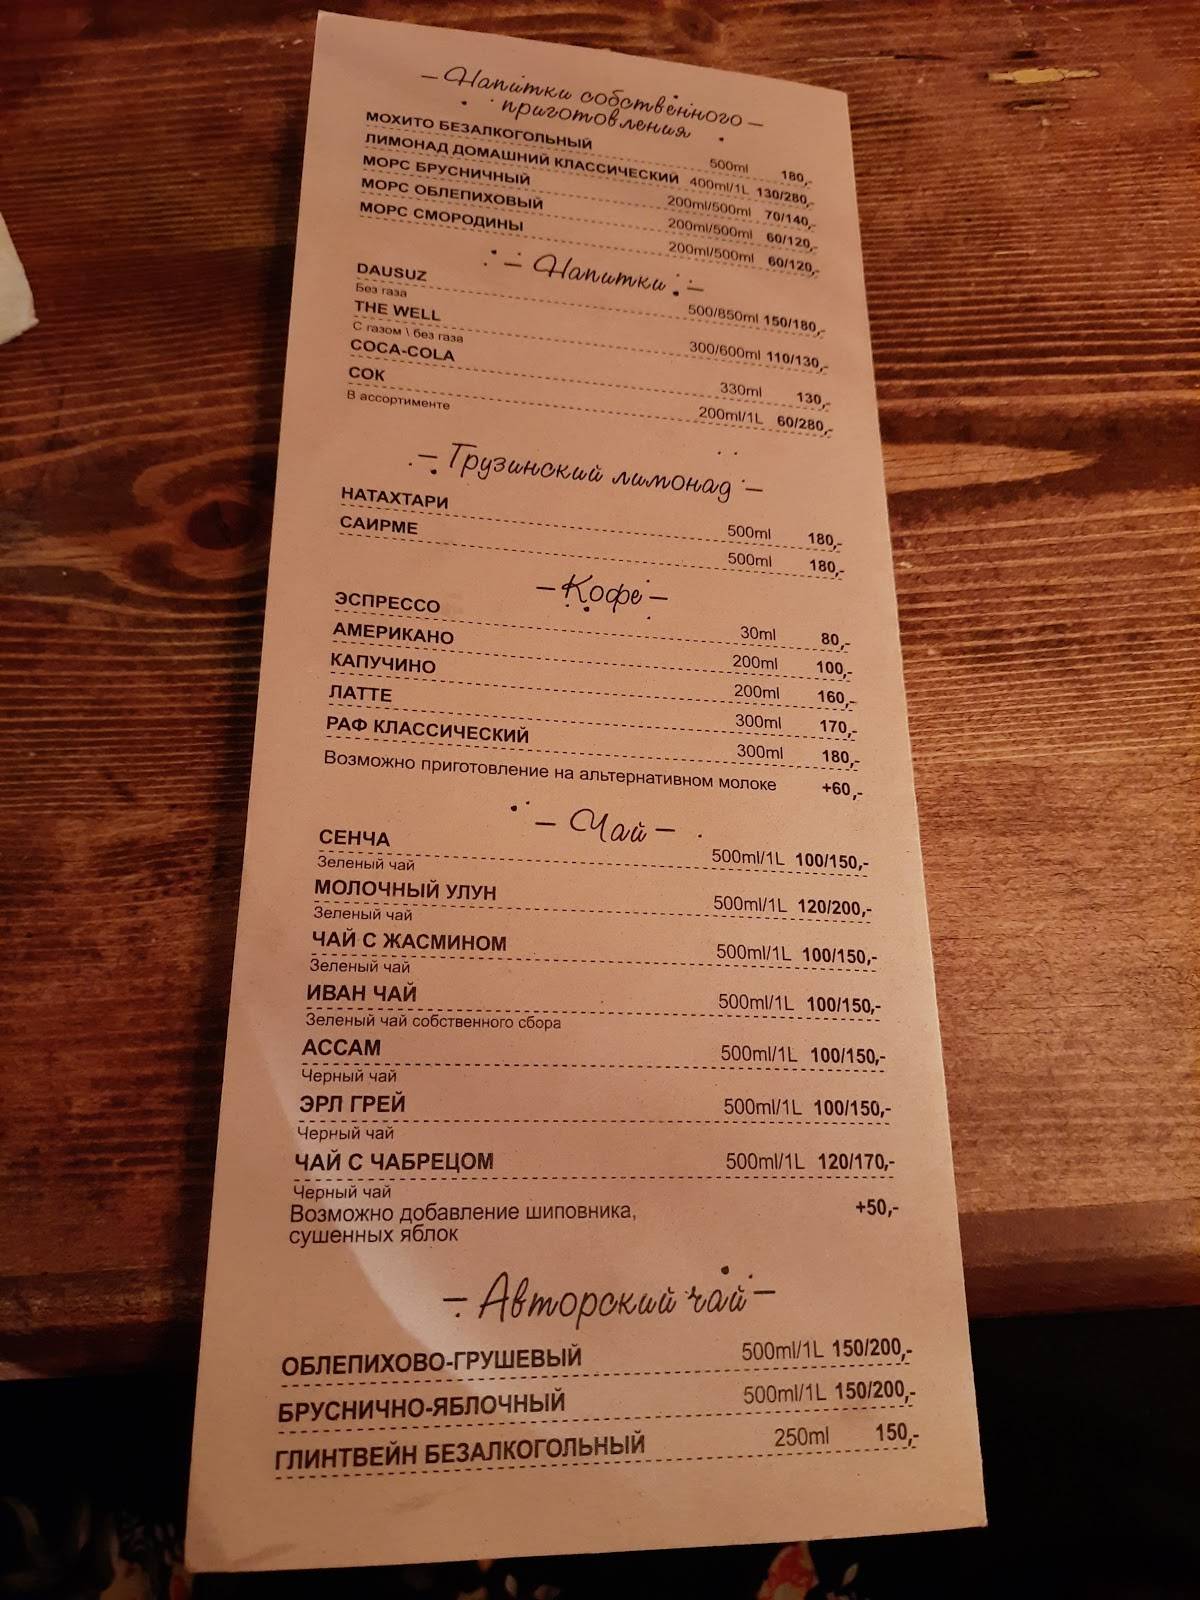 Напитки собственного
приготовления
МОХИТО БЕЗАЛКОГОЛЬНЫЙ 500ml 180,-
ЛИМОНАД ДОМАШНИЙ КЛАССИЧЕСКИЙ 400ml/1L 130/280,-
МОРС БРУСНИЧНЫЙ 200ml/500ml 70/140,-
МОРС ОБЛЕПИХОВЫЙ 200ml/500ml 60/120,-
МОРС СМОРОДИНЫ 200ml/500ml 60/120,-
– Напитки –
DAUSUZ 500/850ml 150/180,-
Без газа
THE WELL 300/600ml 110/130,-
С газом \ без газа
COCA-COLA 330ml 130,-
СОК 200ml/1L 60/280,-
В ассортименте
– Грузинский лимонад –
НАТАХТАРИ 500ml 180,-
САИРМЕ 500ml 180,-
– Кофе –
ЭСПРЕССО 30ml 80,-
АМЕРИКАНО 200ml 100,-
КАПУЧИНО 200ml 160,-
ЛАТТЕ 300ml 170,-
РАФ КЛАССИЧЕСКИЙ 300ml 180,-
Возможно приготовление на альтернативном молоке +60,-
– Чай –
СЕНЧА 500ml/1L 100/150,-
Зеленый чай
МОЛОЧНЫЙ УЛУН 500ml/1L 120/200,-
Зеленый чай
ЧАЙ С ЖАСМИНОМ 500ml/1L 100/150,-
Зеленый чай
ИВАН ЧАЙ 500ml/1L 100/150,-
Зеленый чай собственного сбора
АССАМ 500ml/1L 100/150,-
Черный чай
ЭРЛ ГРЕЙ 500ml/1L 100/150,-
Черный чай
ЧАЙ С ЧАБРЕЦОМ 500ml/1L 120/170,-
Черный чай
Возможно добавление шиповника, +50,-
сушенных яблок
– Авторский чай –
ОБЛЕПИХОВО-ГРУШЕВЫЙ 500ml/1L 150/200,-
БРУСНИЧНО-ЯБЛОЧНЫЙ 500ml/1L 150/200,-
ГЛИНТВЕЙН БЕЗАЛКОГОЛЬНЫЙ 250ml 150,-